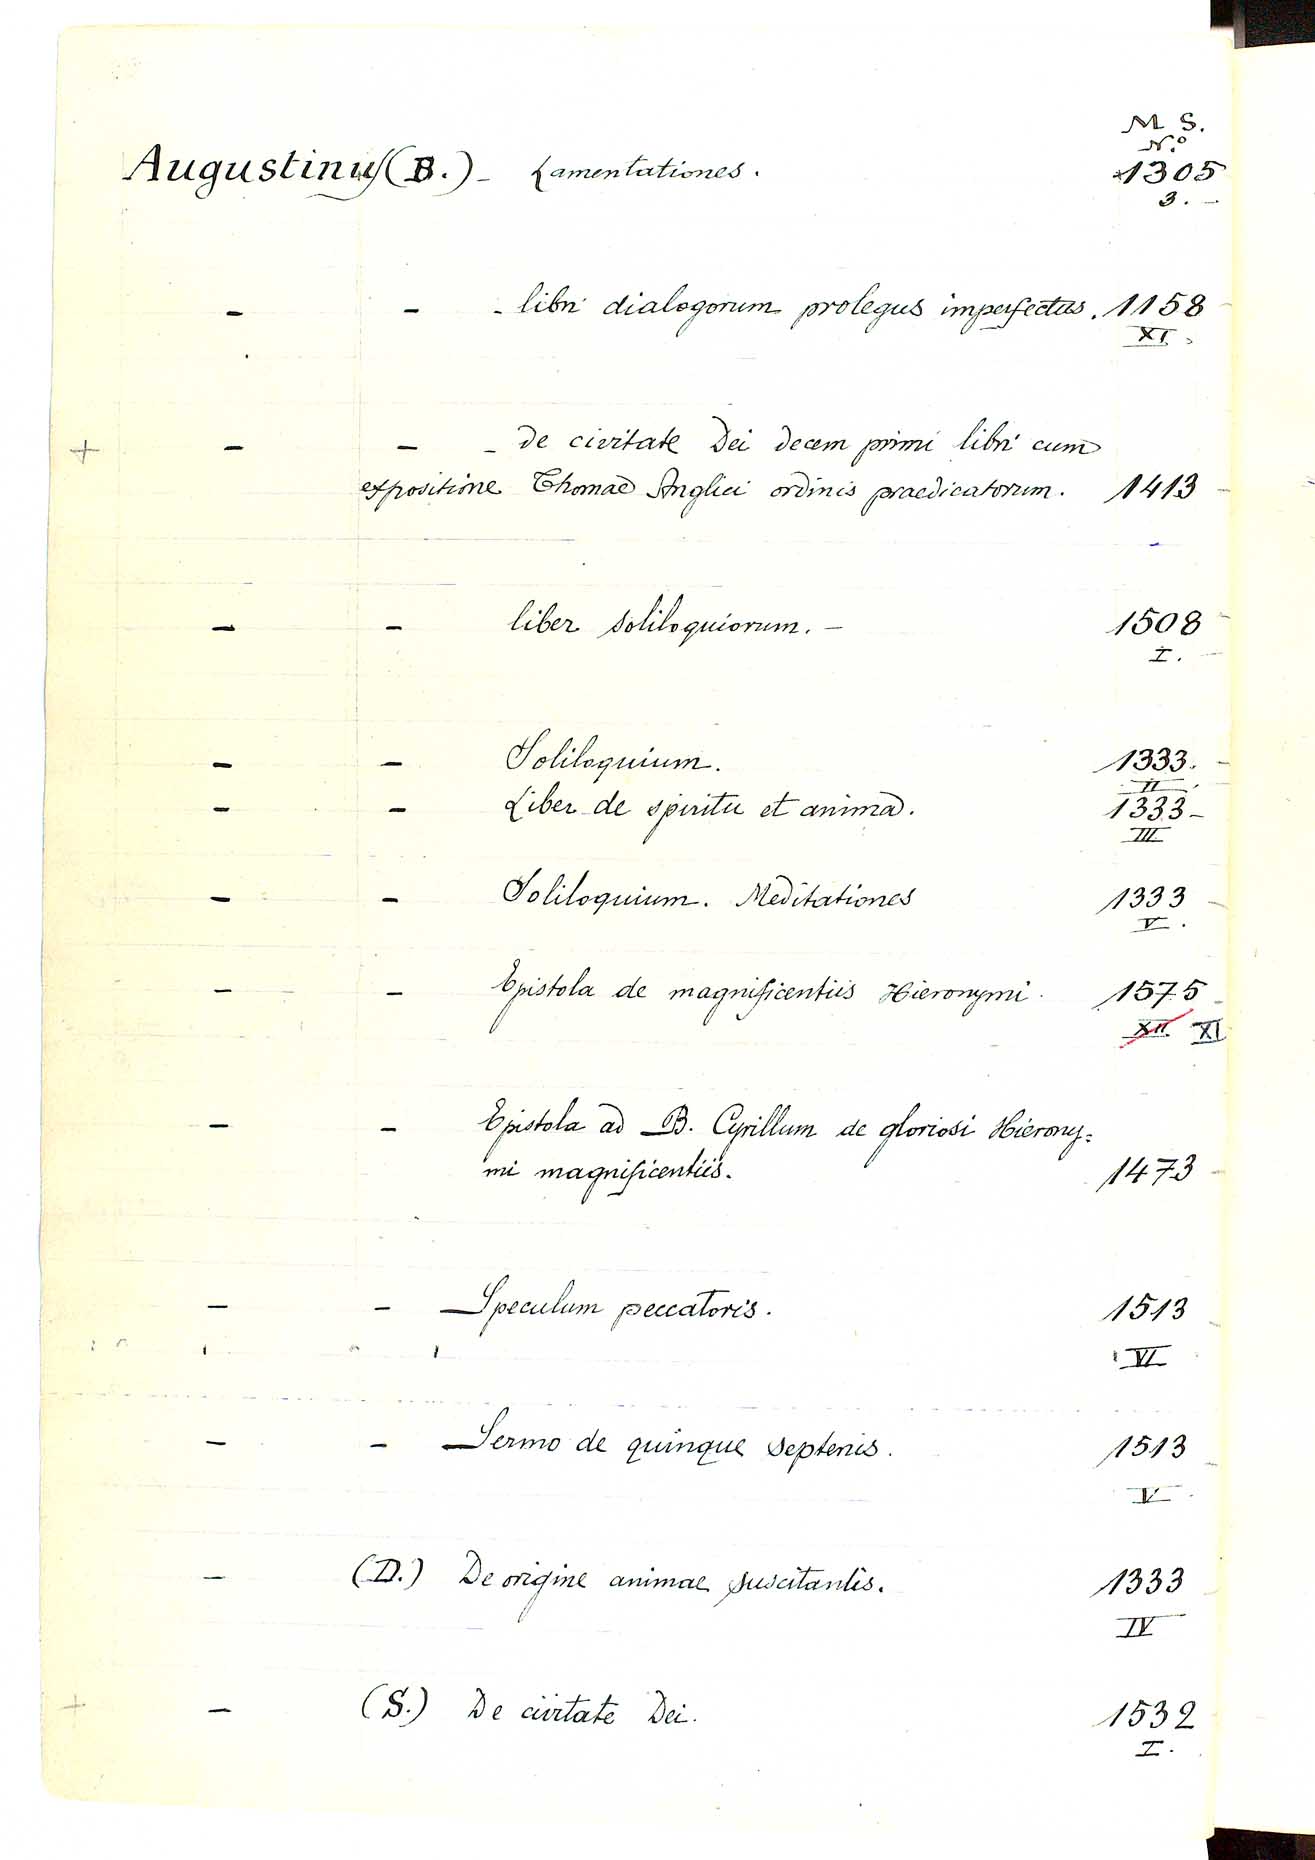 M S.
N.º
Augustinus (B.) - Lamentationes. 1305
3. -
- - - libri dialogorum prolegus imperfectus. 1158
XI.
+ - - - de civitate Dei decem primi libri cum
expositione Thomae Anglici ordinis praedicatorum. 1413
- - liber soliloquiorum. - 1508
I.
- - Soliloquium. 1333.
II
- - Liber de spiritu et anima. 1333 -
III
- - Soliloquium. Meditationes 1333
V.
- - Epistola de magnificentiis Hieronymi. 1575
XII XI
- - Epistola ad B. Cyrillum de gloriosi Hierony=
mi magnificentiis. 1473
- - Speculum peccatoris. 1513
VI
- - Sermo de quinque septenis. 1513
V
- (D.) De origine animae suscitantis. 1333
IV
+ - (S.) De civitate Dei. 1532
I.